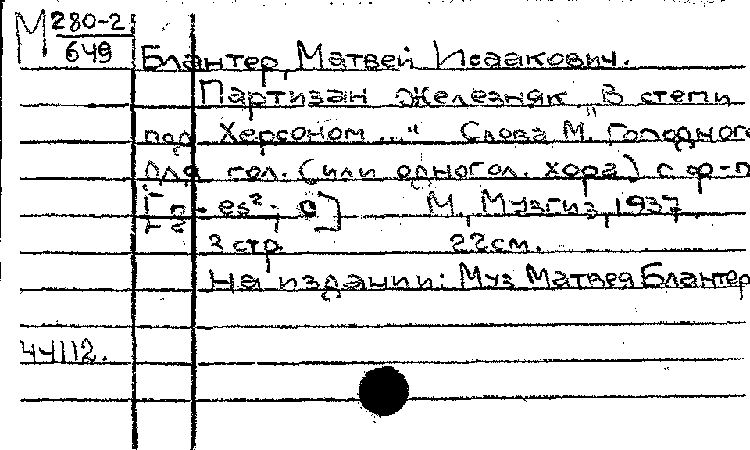 М 280-2
649
Блантер, Матвей Исаакович.
Партизан Железняк "В степи
под Херсоном..." Слова М. Голодного
Для гол. (или одногол. хора) с ф-п
es²; М., Музгиз, 1937
3 стр. 22 см.
На издании: Муз Матвея Блантер
44112.